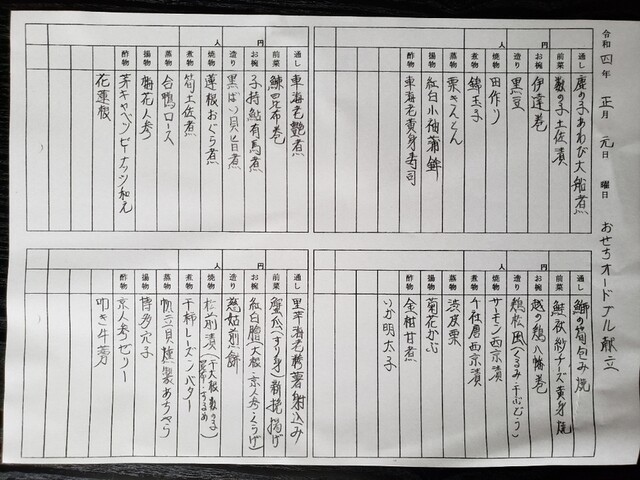 令和四年 正月 元日 曜日 おせちオードブル献立
人 円
通し 前菜 お椀 造り 焼物 煮物 蒸物 揚物 酢物
鹿の子あわび大船煮
数の子土佐漬
伊達巻
黒豆
田作り
錦玉子
栗きんとん
紅白小袖蒲鉾
車海老黄身寿司
人 円
通し 前菜 お椀 造り 焼物 煮物 蒸物 揚物 酢物
車海老艶煮
鰊昆布巻
子持鮎有馬煮
黒ばい貝旨煮
蓮根おぐら煮
筍土佐煮
合鴨ロース
梅花人参
芽キャベツピーナッツ和え
花蓮根
人 円
通し 前菜 お椀 造り 焼物 煮物 蒸物 揚物 酢物
鰤の筍包み焼
鮭袱紗チーズ黄身焼
越の鶏八幡巻
鶏松風(くるみ・干ぶどう)
サーモン西京漬
千社唐西京漬
渋皮栗
菊花かぶ
金柑甘煮
いか明太子
人 円
通し 前菜 お椀 造り 焼物 煮物 蒸物 揚物 酢物
里芋海老射込み
蟹爪(すり身)新挽揚げ
紅白膾(大根・京人参・くらげ)
慈姑煎餅
松前漬(干大根・数の子・昆布・するめ)
干柿レーズンバター
帆立貝燻製あちゃら
博多穴子
京人参ゼリー
叩き牛蒡